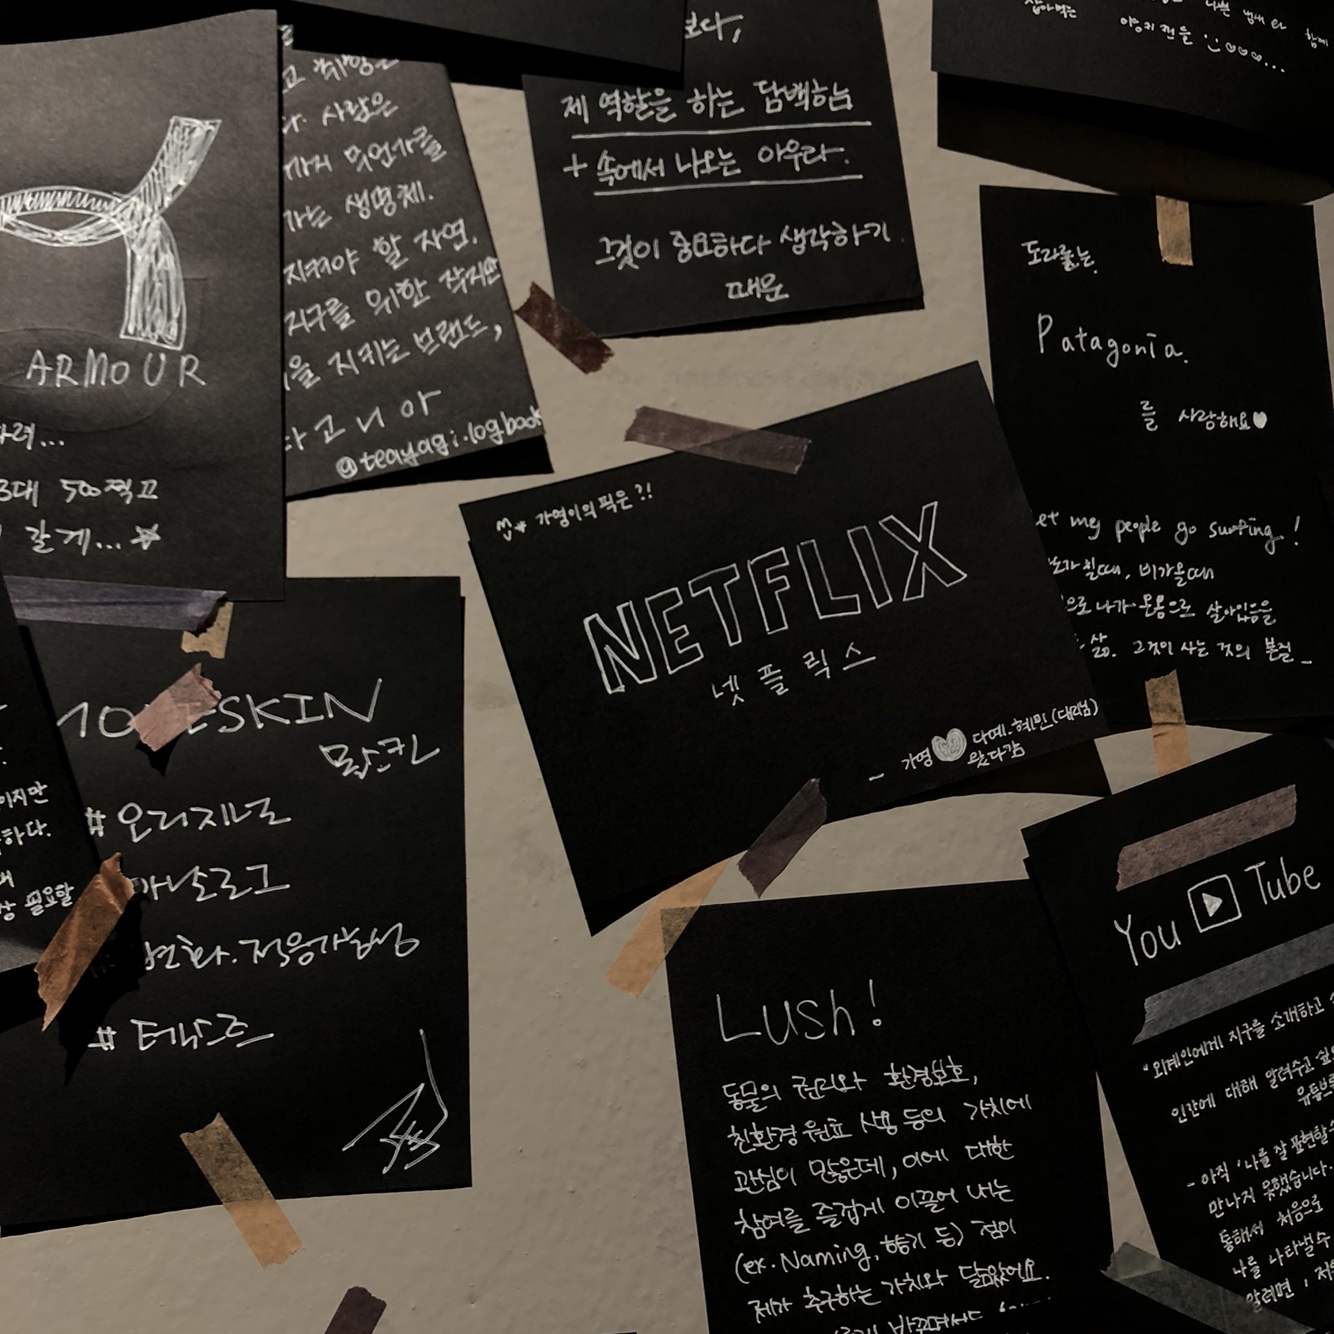 ARMOUR
3대 500찍고
갈게...
사람은
생명체.
지켜야 할 자연.
지구를 위한 작지만
을 지키는 브랜드,
타고니아
@teayagi.logbook
보다,
제 역할을 하는 담백하늠
+ 속에서 나오는 아우라.
그것이 중요하다 생각하기
때문
함께
도라훌는,
Patagonia.
를 사랑해요♥
let my people go surfing!
비가올때
으로 나가 온몸으로 살아있음을
삶. 그것이 사는 것의 본질_
가영이의 픽은?!
NETFLIX
넷플릭스
- 가영♥다예.혜민(대리님)
왔다감
MOLESKIN
몰스킨
#오리지널
아날로그
변화.적응가능성
# 텍스트
이지만
하다.
필요할
Lush!
동물의 권리와 환경보호,
친환경 원료 사용 등의 가치에
관심이 많은데, 이에 대한
참여를 즐겁게 이끌어 내는
(ex. Naming, 향기 등) 점이
제가 추구하는 가치와 닮았어요.
You Tube
"외계인에게 지구를 소개하고
인간에 대해 알려주고 싶으
유튜브
- 아직 '나를 잘 표현할수
만나지 못했습니다.
통해서 처음으로
나를 나타낼수
알려면,